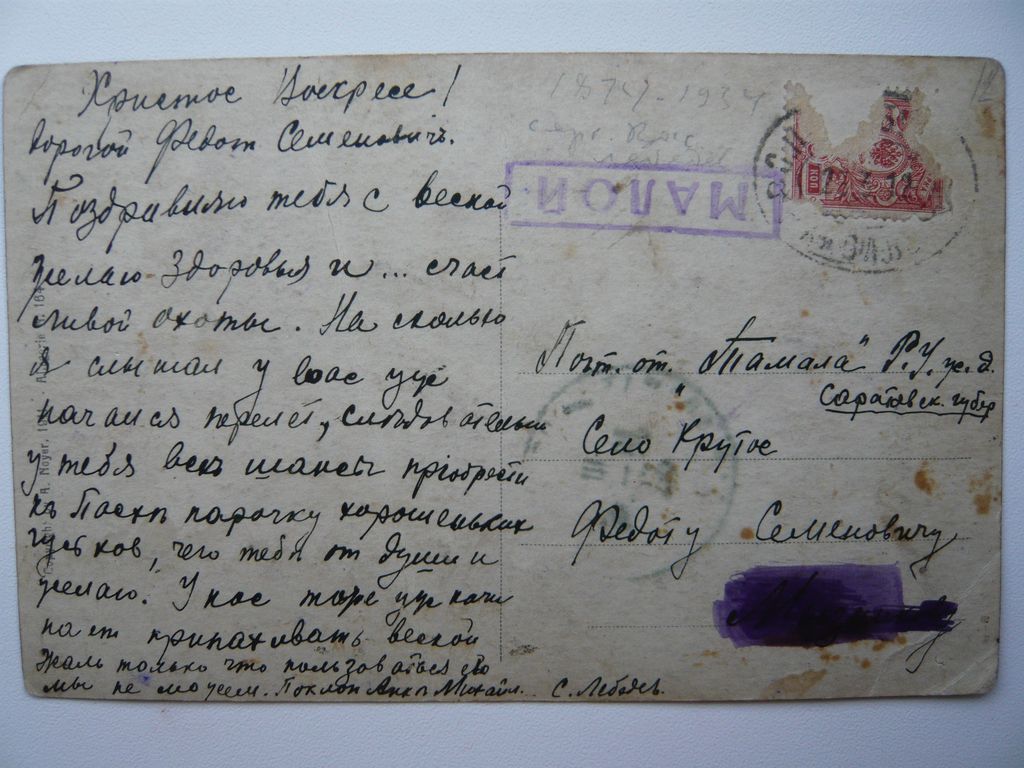 Христос Воскресе!
Дорогой Федот Семеновичъ.
Поздравляю тебя с весной
желаю здоровья и... счаст
ливой охоты. На сколько
я слышал у вас уже
начался перелет, следовательно
у тебя всѣ шансы пріобрести
къ Пасхѣ парочку хорошеньких
гуськов, чего тебѣ от души и
желаю. У нас тоже уже начи
нает припахивать весной
Жаль только что пользоваться ею
мы не можем. Поклон Аннѣ Михайл. С. Лебедев.
1874-1934
МАЛОЙ
Почт. от. "Тамала" Р.У. ж.д.
Саратовск. губер
Село Крутое
Федоту Семеновичу
R. Noyer,